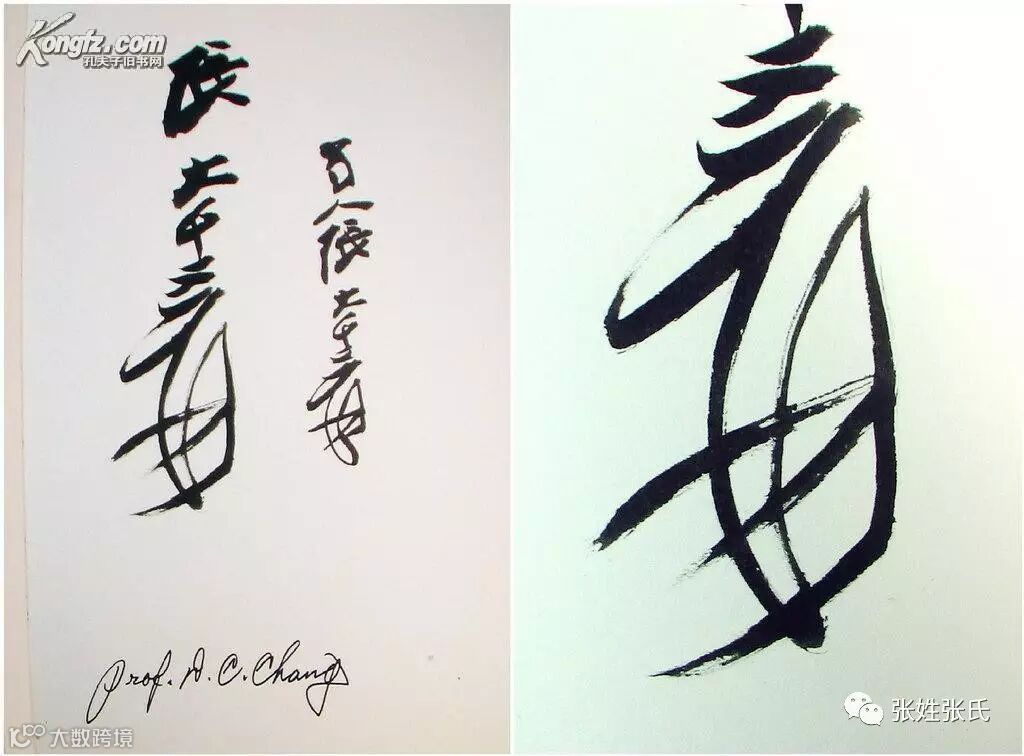 Kongfz.com
孔夫子旧书网
張大千爰
蜀人張大千爰
爰
Prof. D. C. Chang
张姓张氏
大数跨境